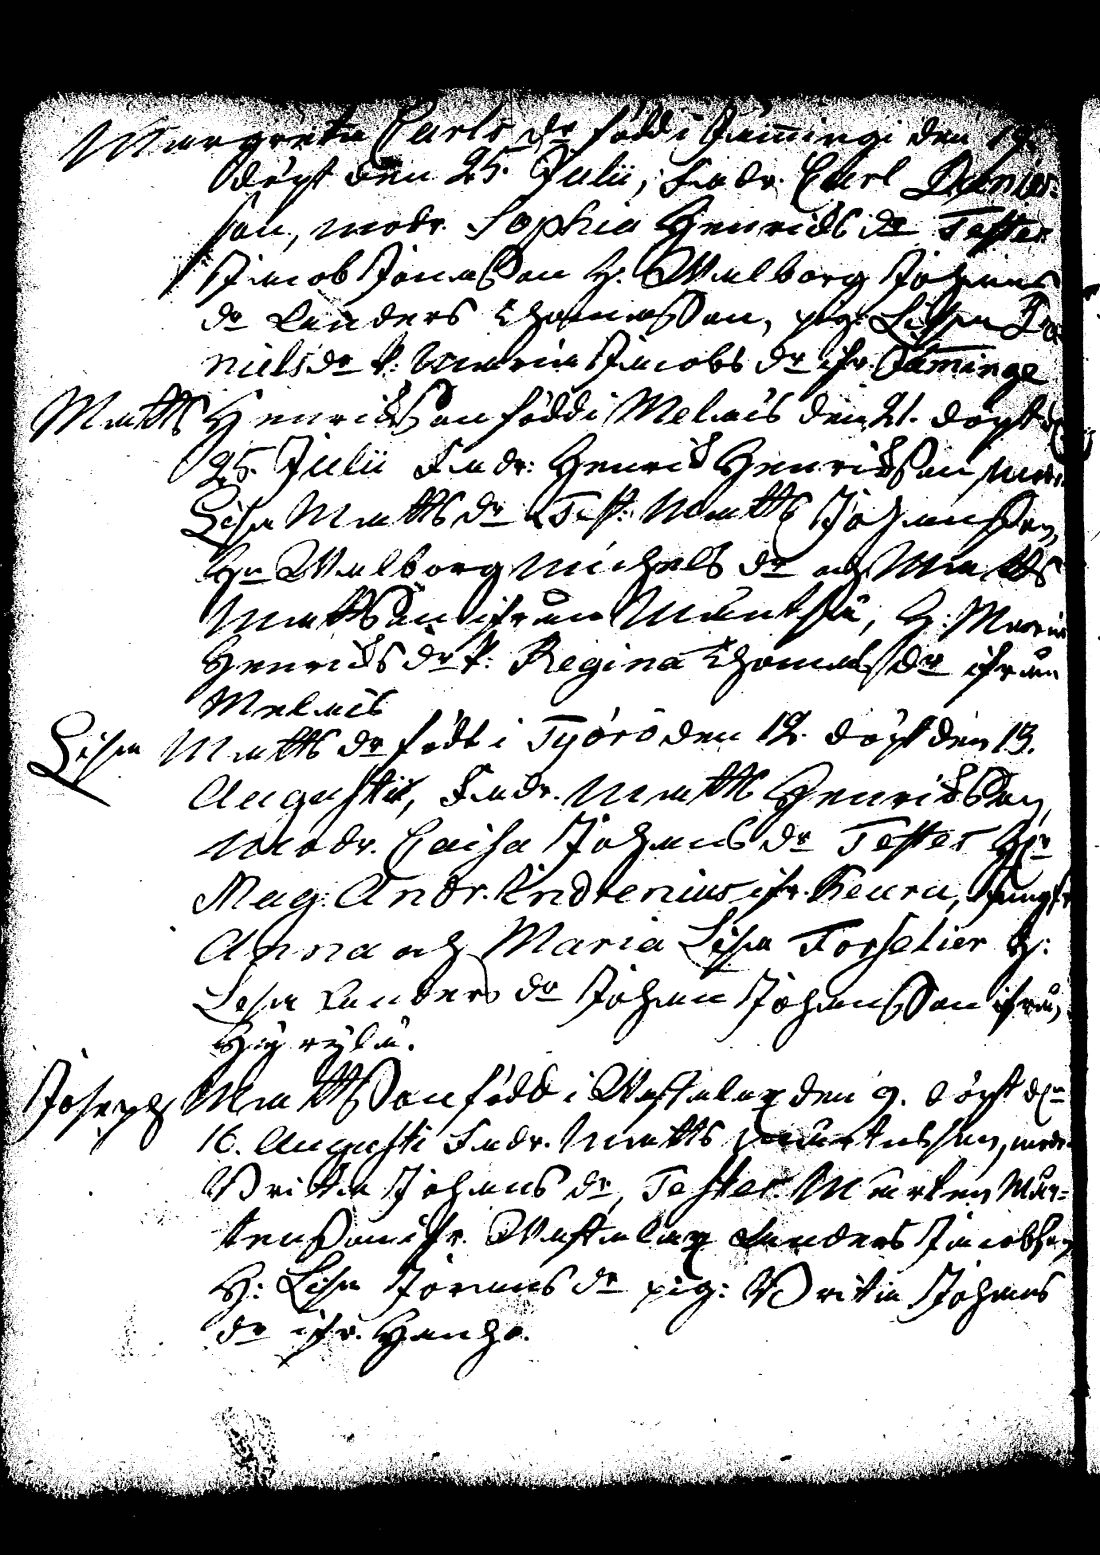 Margreta Carls dr född i Tämingi den 19.
döpt den 25. Julii, Fadr. Carl Daniels-
son, modr. Sophia Henrichs dr Testes
Jacob Jonasson H. Walborg Johans
dr Anders Thomasson, pig. Lisa Da
niels dr P. Maria Jacobs dr ifr. Täminge
Matts Henrichsson född i Melais den 21. döpt d.
25. Julii Fadr: Henrich Henrichsson modr.
Lisa Matts dr Test: Matts Johansson,
Hu Walborg Michels dr och Matts
Mattsson ifrån Mäntsä, H: Maria
Henrichs dr P: Regina Thomas dr ifrån
Melais
Lisa Matts dr född i Työrö den 12. döpt den 13.
Augustii, Fadr. Matts Henrichsson,
modr. Caisa Johans dr Testes Hr
Mag. Andr. Indrenius ifr. Keuru, Jungfr
Anna och Maria Lisa Forselier H:
Lisa Anders dr Johan Johansson ifrån
Höyrylä.
Joseph Mattsson född i Wastalax den 9. döpt dn
16. Augusti Fadr. Matts Mårtensson, modr.
Britta Johans dr, Testes. Mårten Mår=
tensson ifr. Wastalax Anders Jacobsson
H: Lisa Jörans dr pig: Britta Johans
dr ifr. Hanho.